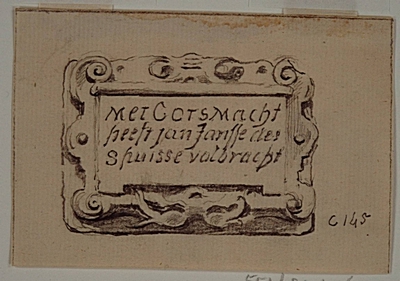 Met Gots Macht
heeft jan Jansse des
Shuisse volbracht
C 145